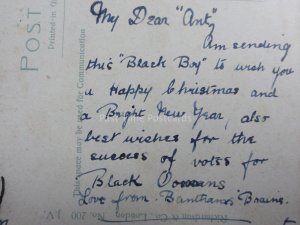 My Dear "Ant",
Am sending
this "Black Boy" to wish you
a Happy Christmas and
a Bright New Year, also
best wishes for the
success of votes for
Black
Love from Bantham's Brains.
POST
Printed in
This space may be used for Communication
& Co., London. No. 200 J.V.